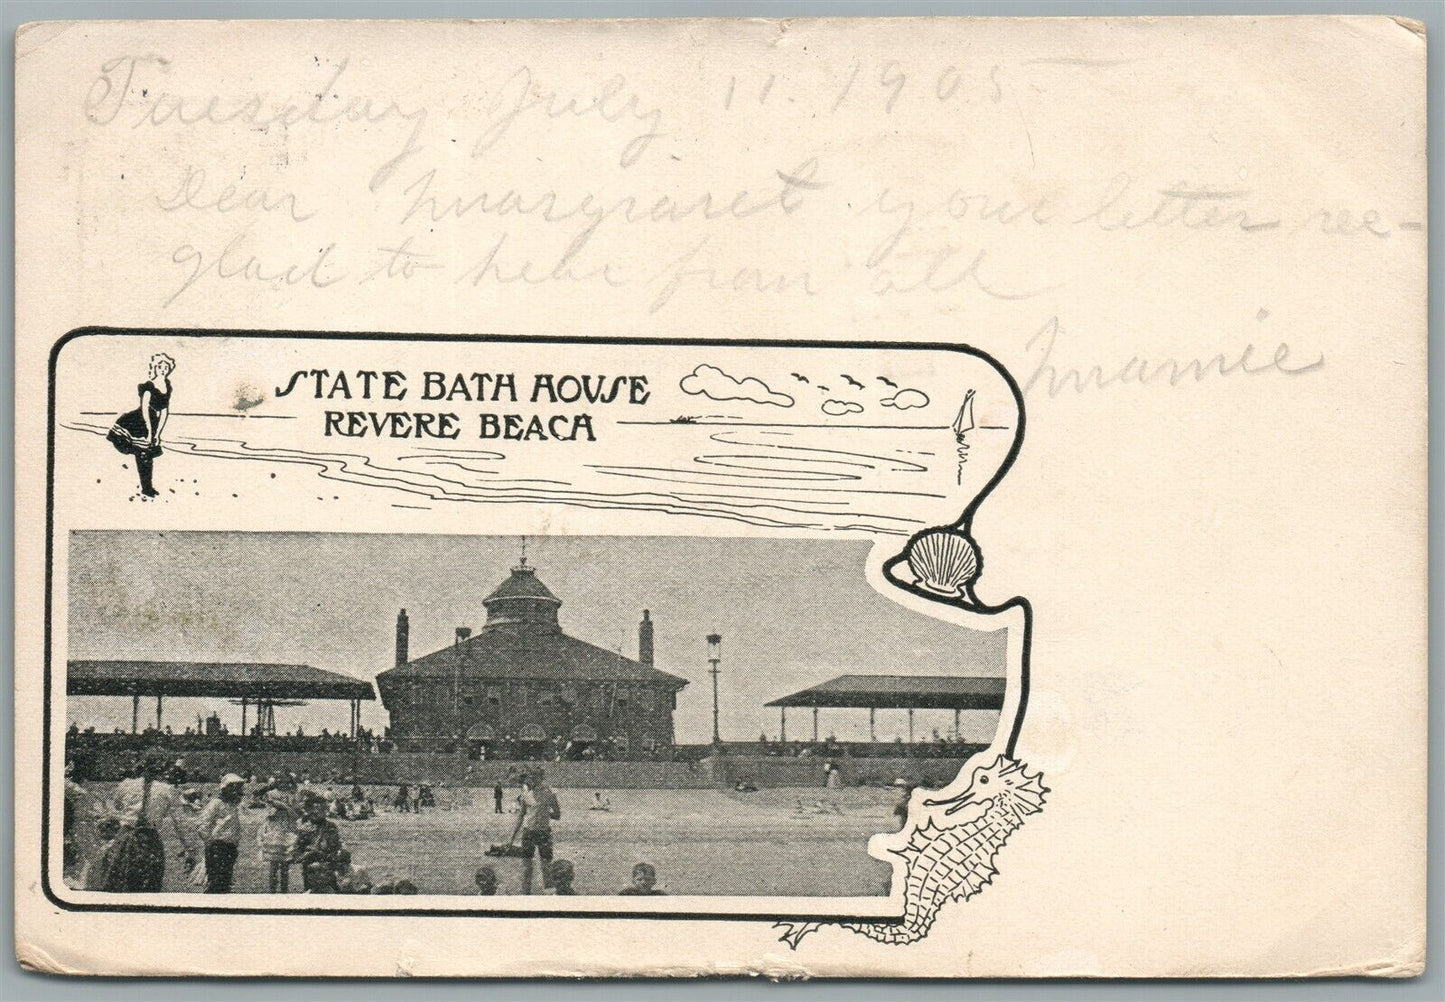 Tuesday July 11. 1905
Dear Margaret your letter rec-
glad to hear from all
Mamie
STATE BATH HOUSE
REVERE BEACH